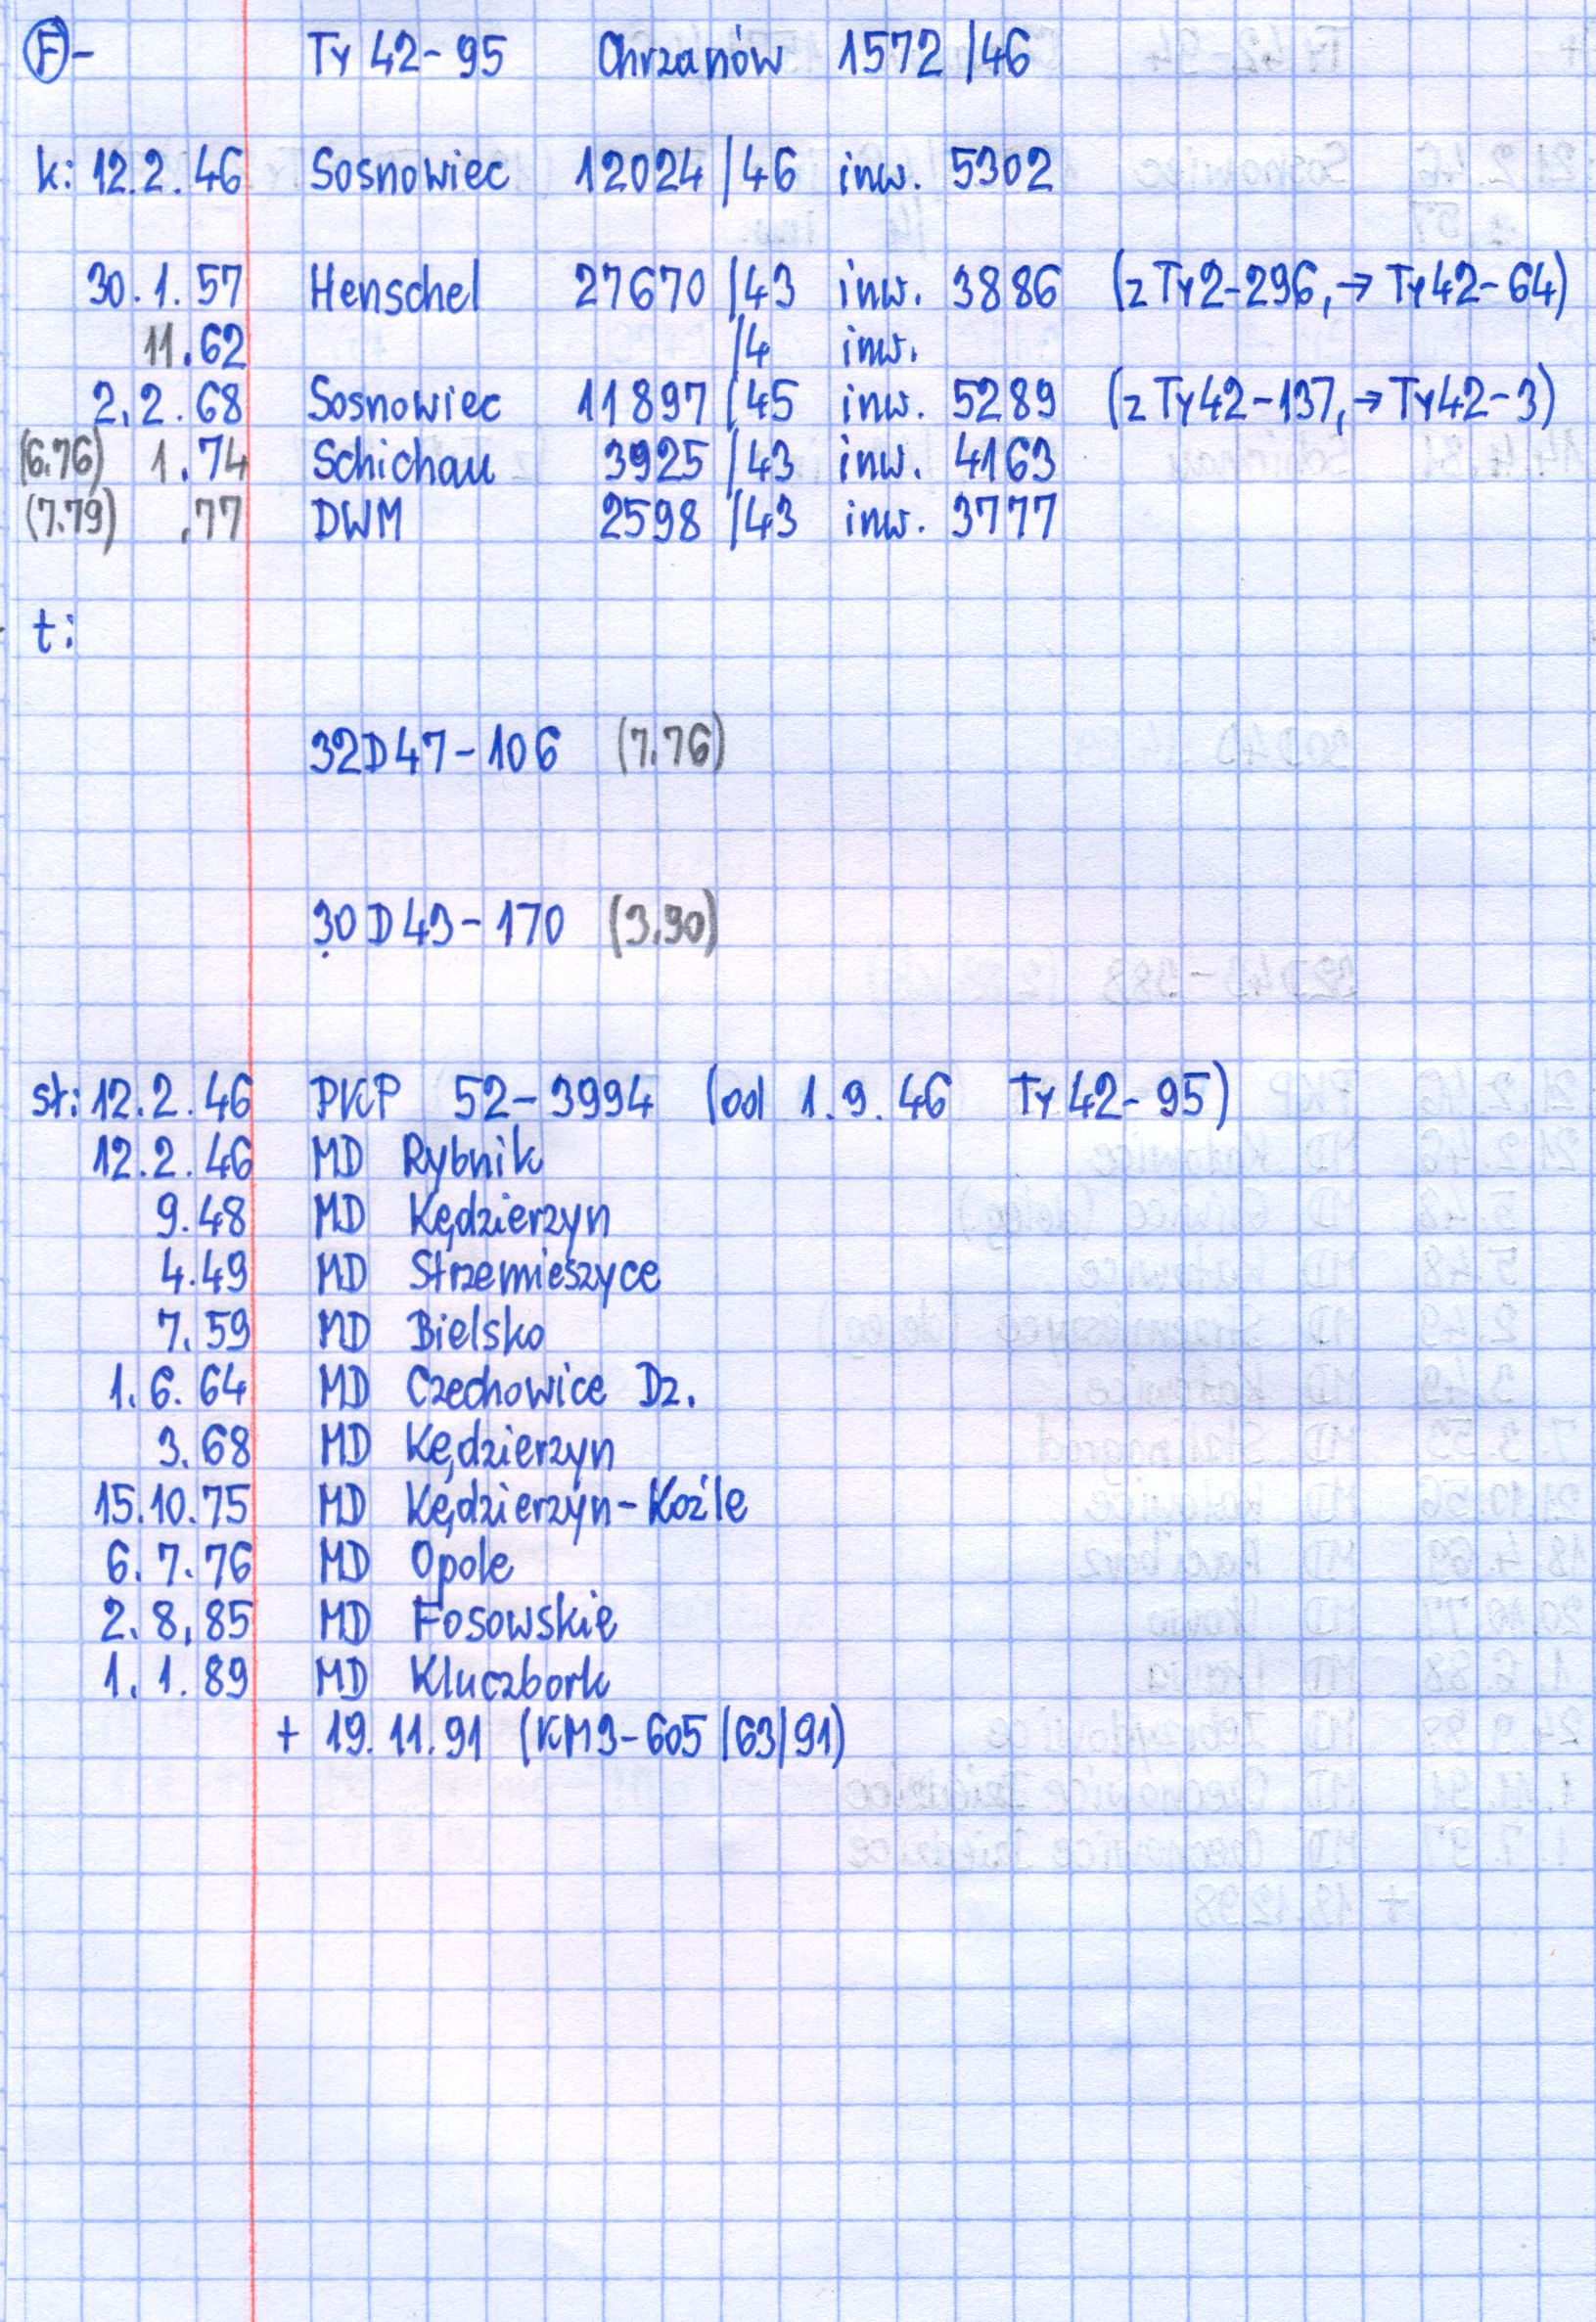 F- Ty 42-95 Chrzanów 1572/46
k: 12.2.46 Sosnowiec 12024/46 inw. 5302
30.1.57 Henschel 27670/43 inw. 3886 (z Ty2-296, → Ty42-64)
11.62 /4 inw.
2.2.68 Sosnowiec 11897/45 inw. 5289 (z Ty42-137, → Ty42-3)
(6.76) 1.74 Schichau 3925/43 inw. 4163
(7.79) .77 DWM 2598/43 inw. 3777
t:
32D47-106 (7.76)
30D43-170 (3.90)
st: 12.2.46 PKP 52-3994 (od 1.9.46 Ty 42-95)
12.2.46 MD Rybnik
9.48 MD Kędzierzyn
4.49 MD Strzemieszyce
7.59 MD Bielsko
1.6.64 MD Czechowice Dz.
3.68 MD Kędzierzyn
15.10.75 MD Kędzierzyn-Koźle
6.7.76 MD Opole
2.8.85 MD Fosowskie
1.1.89 MD Kluczbork
+ 19.11.91 (KM3-605/63/91)